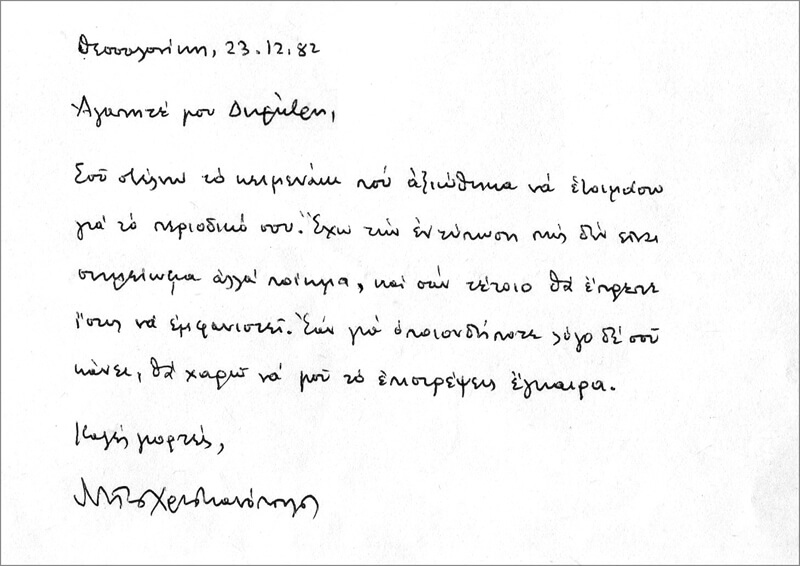 Θεσσαλονίκη, 23.12.82
Ἀγαπητέ μου Δημήτρη,
Σοῦ στέλνω τὸ κειμενάκι πού ἀξιώθηκα νά ἑτοιμάσω
γιά τό περιοδικό σου. Ἔχω τήν ἐντύπωση πώς δέν εἶναι
σημείωμα ἀλλά ποίημα, καί σάν τέτοιο θά ἔπρεπε
ἴσως νά ἐμφανιστεῖ. Ἐάν γιά ὁποιονδήποτε λόγο δέ σοῦ
κάνει, θά χαρῶ νά μοῦ τό ἐπιστρέψεις ἔγκαιρα.
Καλές γιορτές,
Ντῖνος Χριστιανόπουλος